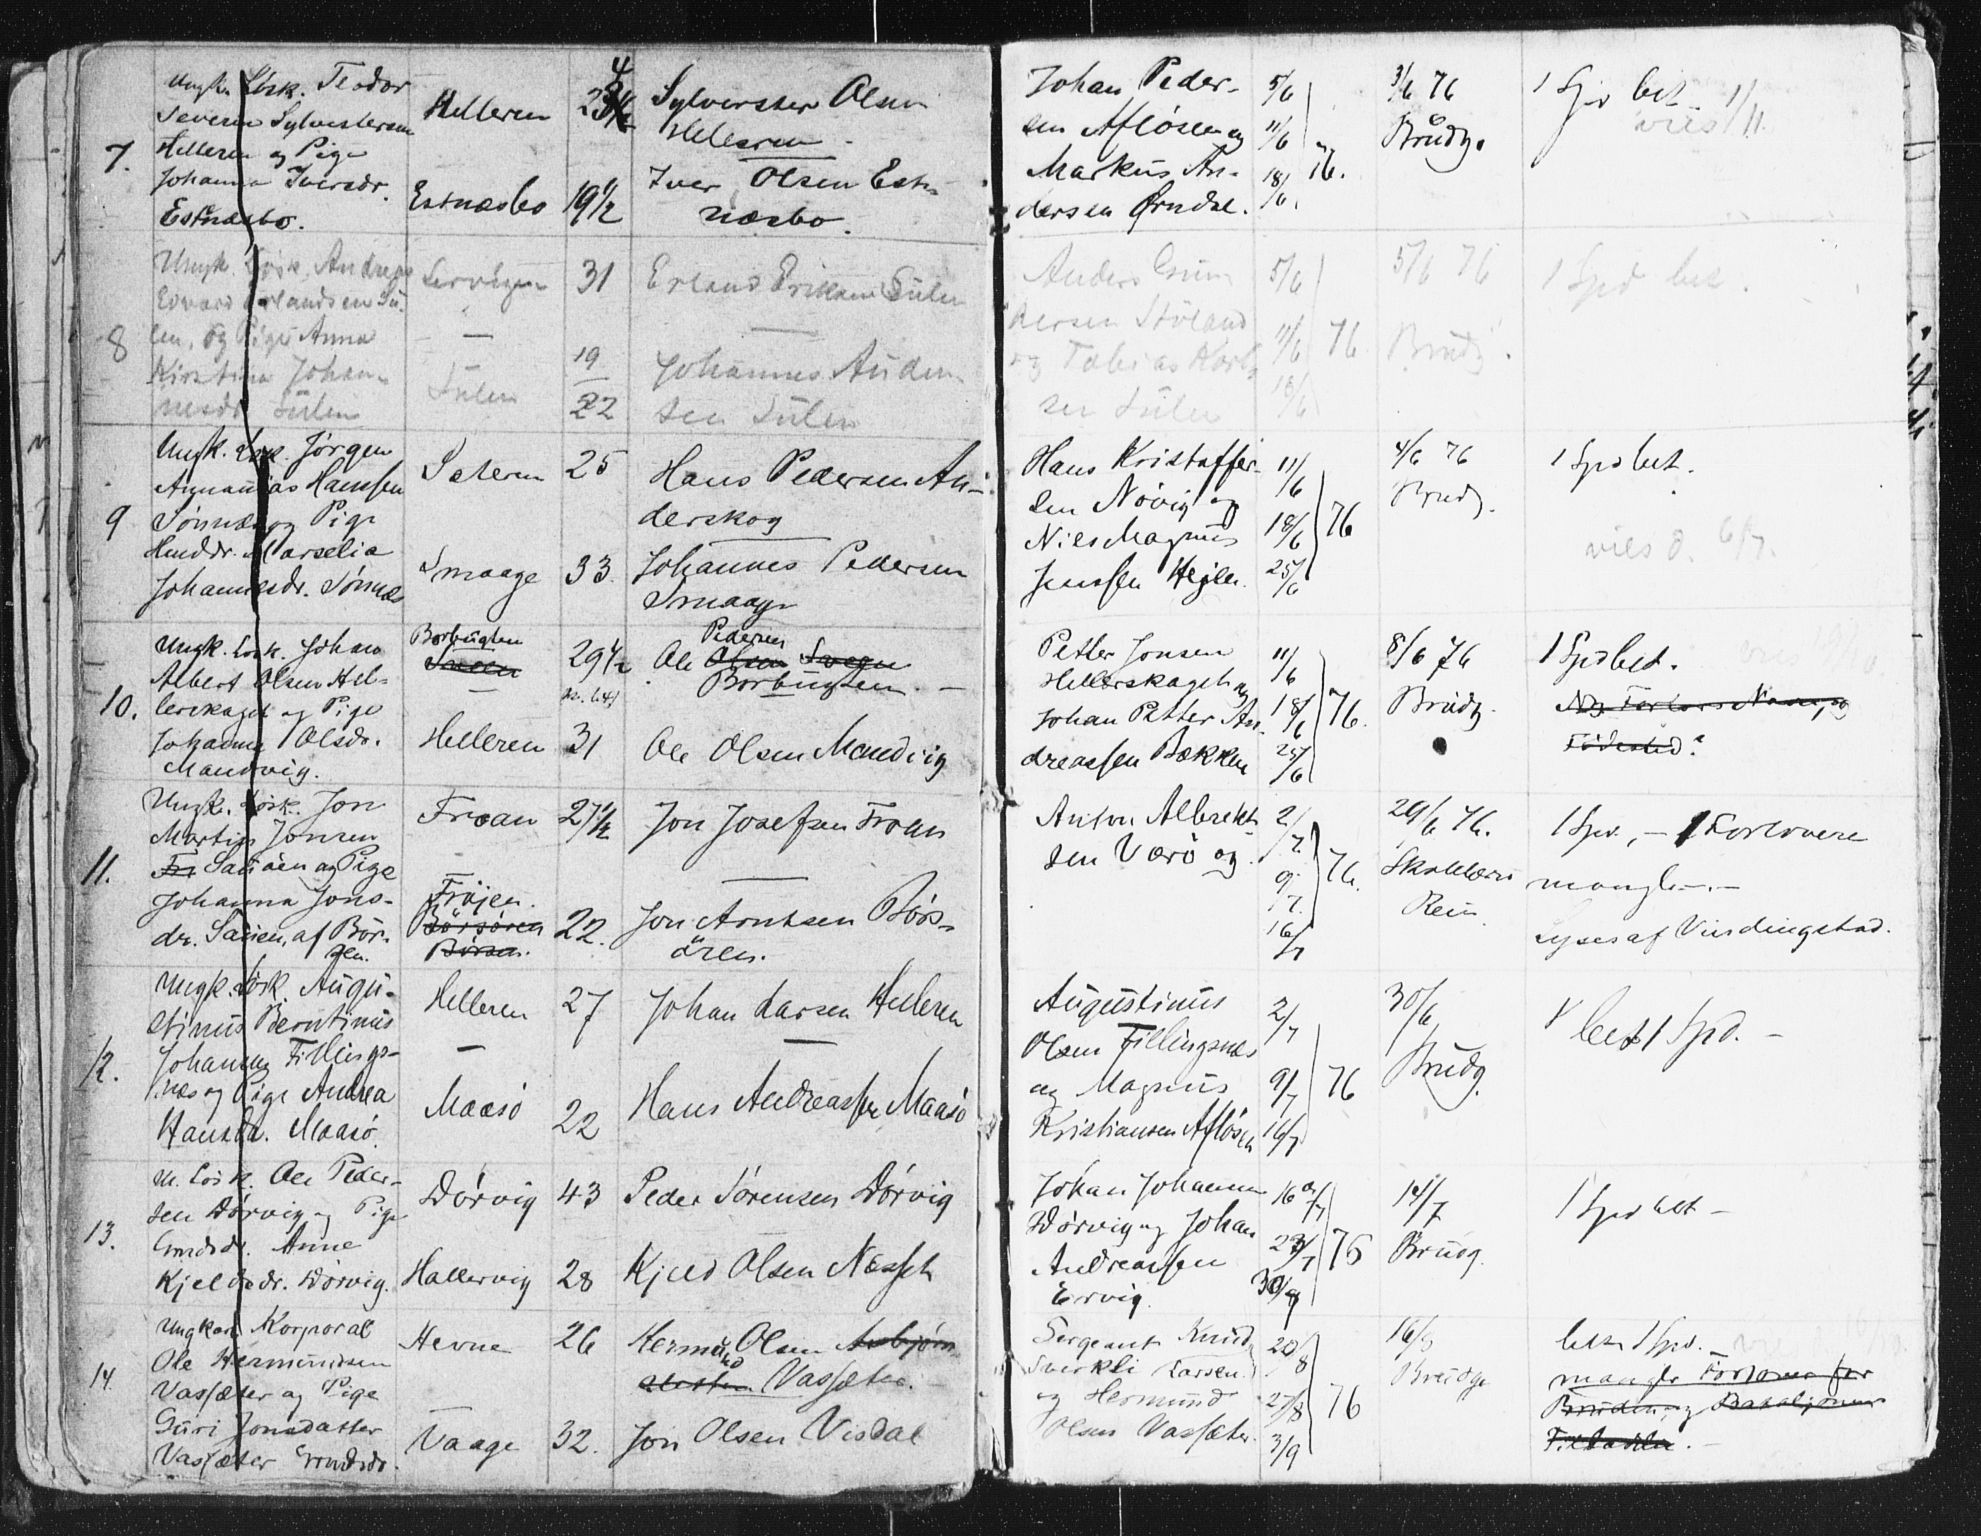 7.
Ungk. Løsk. Teodor
Severin Sylvestersen
Helleren og Pige
Johanna Iversdr.
Estnæsbo.
Helleren
Estnæsbo
19 1/2
Sylverster Olsen
Helleren
Iver Olsen Est-
næsbo.
Johan Peder-
sen Afløsen og
Markus An-
dersen Ørndal.
5/6
11/6
18/6
76.
3/6 76
Brudg.
1 Spd bet.
vies
8
Ungk. Løsk. Andreas
Edvard Erlandsen Su-
len, og Pige Anna
Kirstina Johan-
nesdr Sulen
31
Sulen
19
22
Erland Eriksen Sulen
Johannes Anden-
sen Sulen
Anders Gun-
dersen Støland
og Tobias Karl-
sen Sulen
5/6
11/6
18/6
76.
5/6 76
Brudg.
1 Spd bet.
9
Ungk. Løsk. Jørgen
Annanias Hanssen
Sønnæs og Pige
Huddr. Marselia
Johannesdr. Sønnæs
Sateren
25
Smaage
33.
Hans Pedersen An-
derskog
Johannes Pedersen
Smaage
Hans Kristoffer-
sen Nøvig og
Niels Magnus
Jenssen Hejlen.
11/6
18/6
25/6
76
4/6 76
Brudg.
1 Spd bet.
vies d. 6/7.
10.
Ungk. Løsk. Johan
Albert Olsen Hel-
lerskaget og Pige
Johanna Olsdr.
Mandvig.
Borbugten
29 1/2
Helleren
31
Pedersen
Ole Olsen
Borbugten.
Ole Olsen Mandvig
Petter Jonsen
Hellerskaget og
Johan Petter An-
dreassen Bækken
11/6
18/6
25/6
76.
8/6 76
Brudg.
1 Spd bet.
Fødested?
11.
Ungk. Løsk. Jon
Martin Jonsen
Sauøen og Pige
Johanna Jons-
dr. Sauen, af Bør-
gen.
Froan
27 1/2
Frøjen.
Børsøren
Børsa.
22.
Jon Josefsen Froan
Jon Arntsen Børs-
ören.
Anton Albrekt-
sen Værö og
2/7
9/7.
16/7
76.
29/6 76.
Rein
1 Spd. - 1 Forlovere
mangler. -
Lyses af Vindingstad.
12.
Ungk. Løsk. Augu-
stinus Berntinus
Johansen Fillings-
næs og Pige Andrea
Hansdr. Maasö.
Helleren
27
Maasö
22
Johan Larsen Helleren
Hans Andreassen Maasö
Augustinus
Olsen Fillingsnæs
og Magnus
Kristiansen Afløsen
2/7
9/7
16/7
76
30/6
Brudg.
bet 1 Spd. -
13.
U. Løsk. Ole Peder-
sen Dørvig og Pige
Anne
Kjeldsdr. Dørvig.
Dørvig
43
Hallervig
28
Peder Sørensen Dørvig
Kjeld Olsen Næsset
Johan Johannes
Dørvig og Johan
Andreassen
Ervig.
76
14/7
Brudg.
1 Spd bet -
14.
Ungkarl Korporal
Ole Hermundsen
Vassæter og Pige
Guri Jonsdatter
Vassæter
Hevne
26
Vaage
32.
Hermund Olsen Asbjørn
Vassæter.
Jon Olsen Visdal
Sergeant Knud
Sverkli Larsen
og Hermund
Olsen Vassæter.
20/8
27/8
3/9
76
Brudge
bet 1 Spd.
mangler Forlover for
Bruden, og Bataljonens
Tilladelse. -